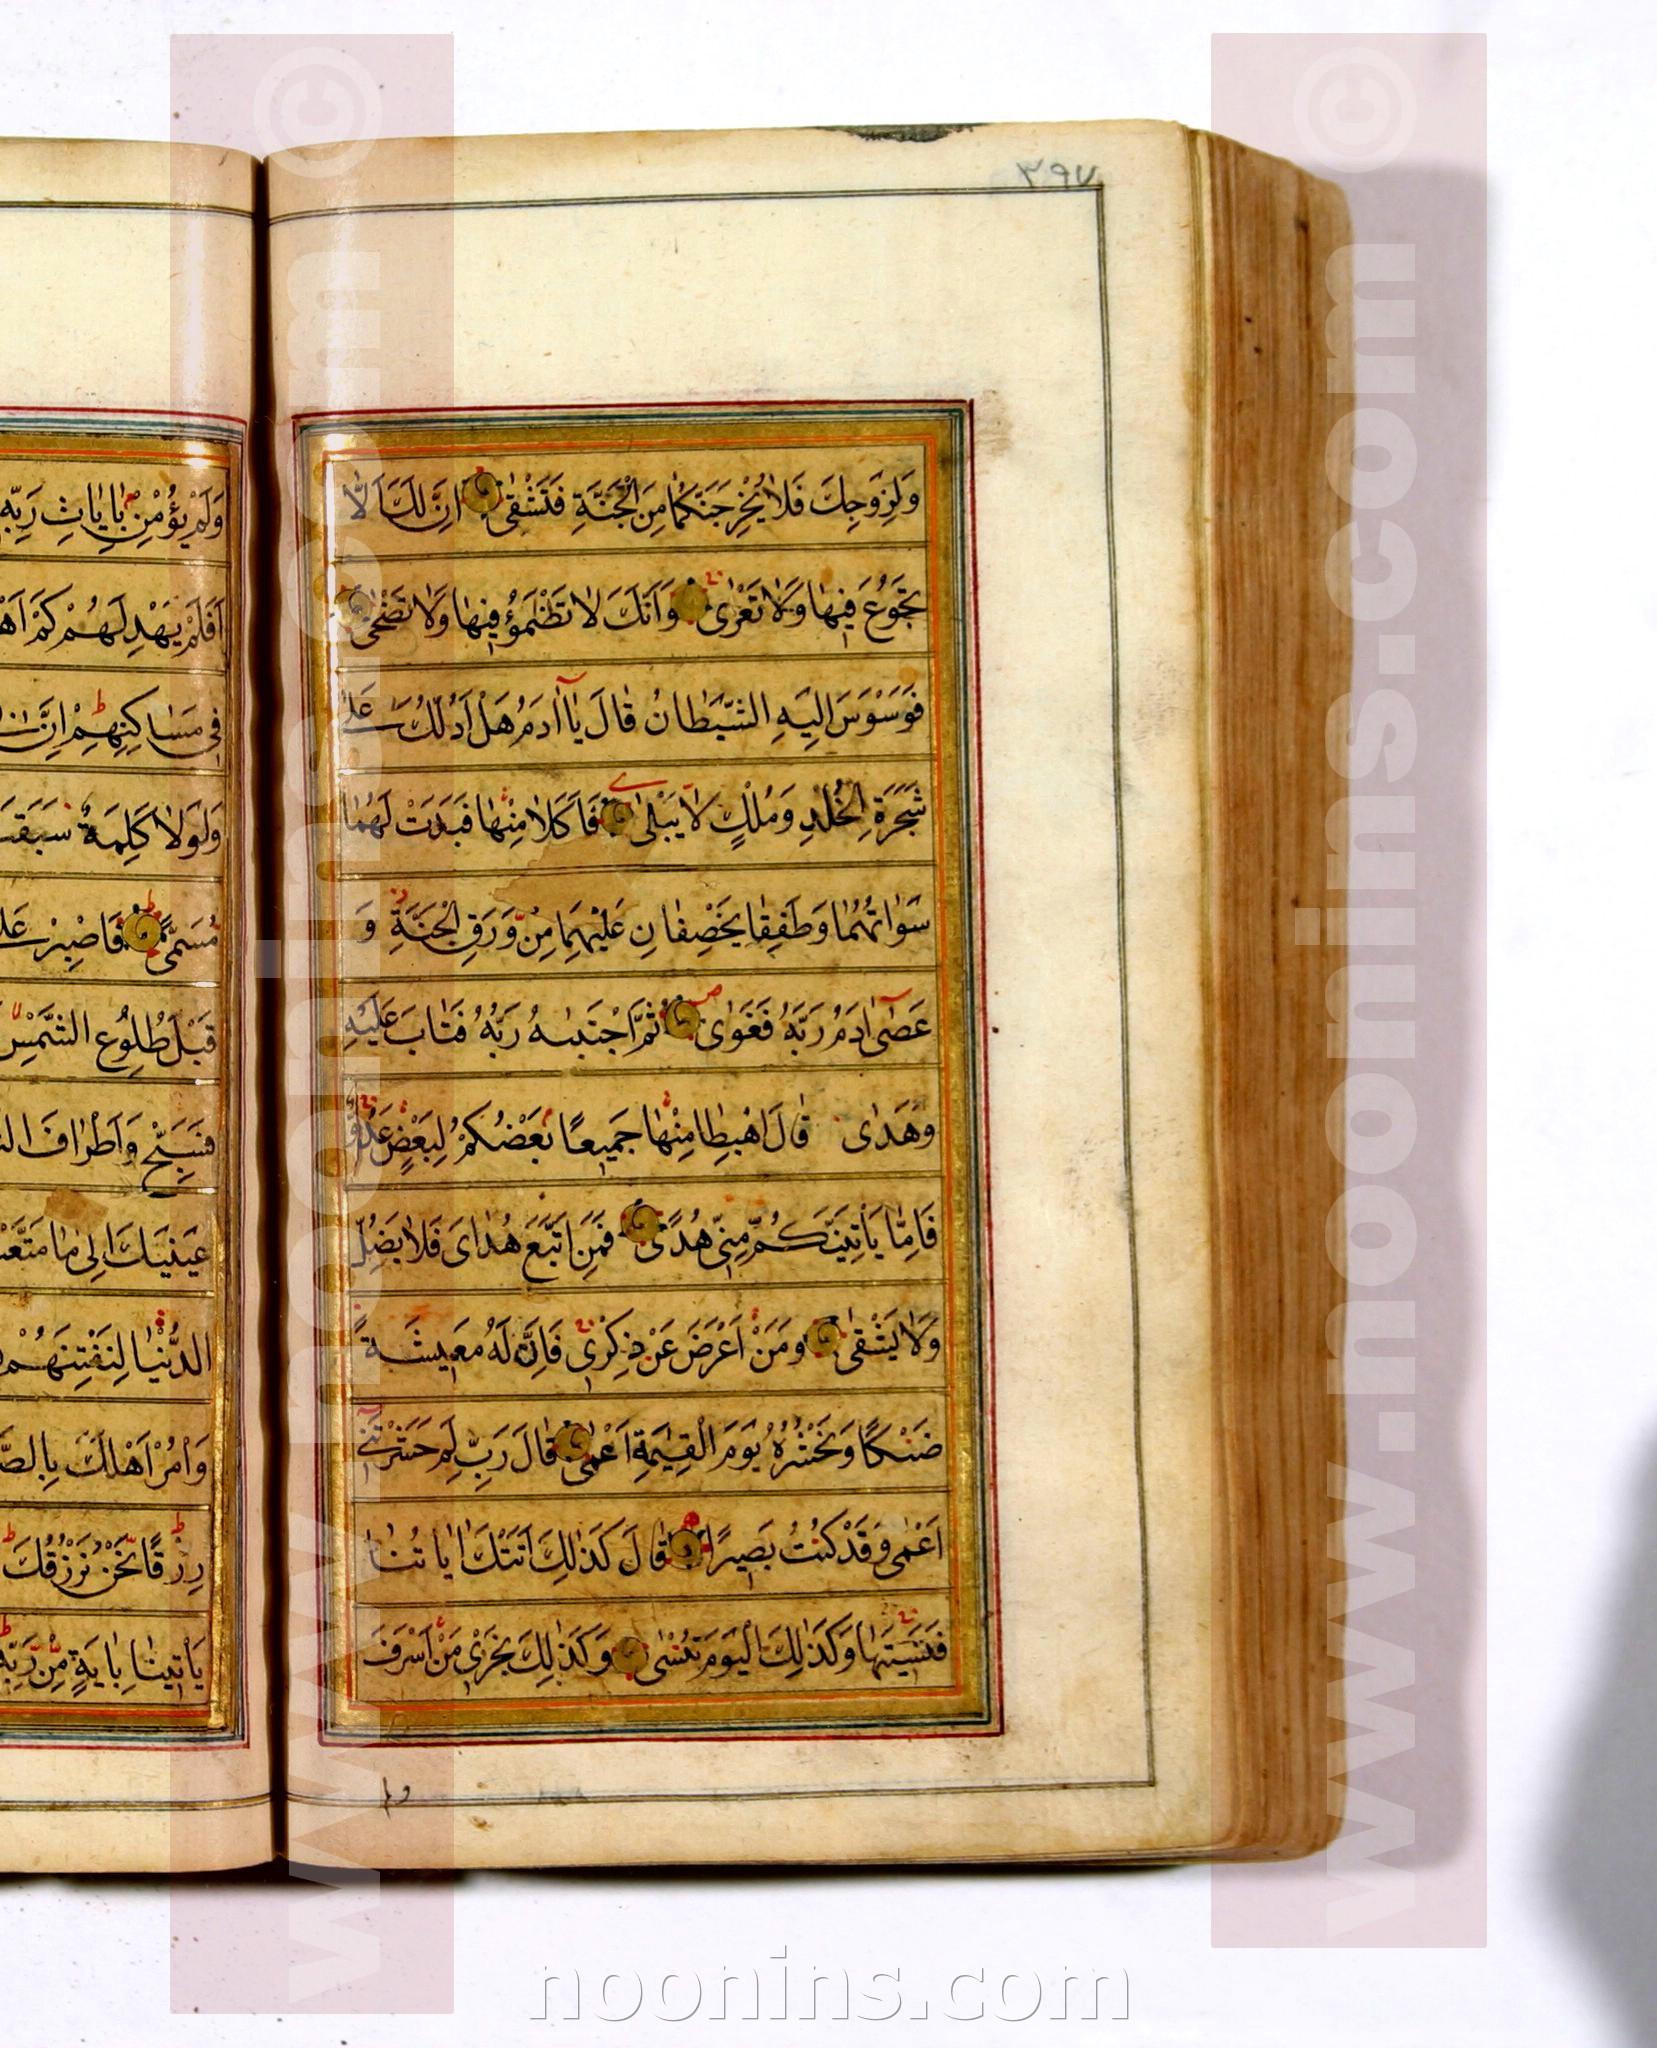 ٣٩٧
وَلِزَوْجِكَ فَلاٰ يُخْرِجَنَّكُمٰا مِنَ الْجَنَّةِ فَتَشْقىٰ اِنَّ لَكَ اَلاّٰ
تَجُوعَ فيهٰا وَلاٰ تَعْرىٰ وَاَنَّكَ لاٰ تَظْمَؤُ فيهٰا وَلاٰ تَضْحىٰ
فَوَسْوَسَ اِلَيْهِ الشَّيْطٰانُ قٰالَ يٰا اٰدَمُ هَلْ اَدُلُّكَ عَلىٰ
شَجَرَةِ الْخُلْدِ وَمُلْكٍ لاٰ يَبْلىٰ فَاَكَلاٰ مِنْهٰا فَبَدَتْ لَهُمٰا
سَوْاٰتُهُمٰا وَطَفِقٰا يَخْصِفٰانِ عَلَيْهِمٰا مِنْ وَرَقِ الْجَنَّةِ وَ
عَصىٰ اٰدَمُ رَبَّهُ فَغَوىٰ ثُمَّ اجْتَبىٰهُ رَبُّهُ فَتٰابَ عَلَيْهِ
وَهَدىٰ قٰالَ اهْبِطٰا مِنْهٰا جَميعًا بَعْضُكُمْ لِبَعْضٍ عَدُوٌّ
فَاِمّٰا يَاْتِيَنَّكُمْ مِنّي هُدًى فَمَنِ اتَّبَعَ هُدٰاىَ فَلاٰ يَضِلُّ
وَلاٰ يَشْقىٰ وَمَنْ اَعْرَضَ عَنْ ذِكْري فَاِنَّ لَهُ مَعيشَةً
ضَنْكًا وَنَحْشُرُهُ يَوْمَ الْقِيٰمَةِ اَعْمىٰ قٰالَ رَبِّ لِمَ حَشَرْتَني
اَعْمىٰ وَقَدْ كُنْتُ بَصيرًا قٰالَ كَذٰلِكَ اَتَتْكَ اٰيٰاتُنٰا
فَنَسيتَهٰا وَكَذٰلِكَ الْيَوْمَ تُنْسىٰ وَكَذٰلِكَ نَجْزي مَنْ اَسْرَفَ
وَلَمْ يُؤْمِنْ بِاٰيٰاتِ رَبِّهِ
اَفَلَمْ يَهْدِ لَهُمْ كَمْ
في مَسٰاكِنِهِمْ اِنَّ
وَلَوْلاٰ كَلِمَةٌ سَبَقَتْ
مُسَمًّى فَاصْبِرْ
قَبْلَ طُلُوعِ الشَّمْسِ
فَسَبِّحْ وَاَطْرٰافَ
عَيْنَيْكَ اِلىٰ مٰا
الدُّنْيٰا لِنَفْتِنَهُمْ
وَاْمُرْ اَهْلَكَ
رِزْقًا نَحْنُ نَرْزُقُكَ
يَاْتينٰا بِاٰيَةٍ مِنْ رَبِّهِ
© www.noonins.com
© www.noonins.com
noonins.com